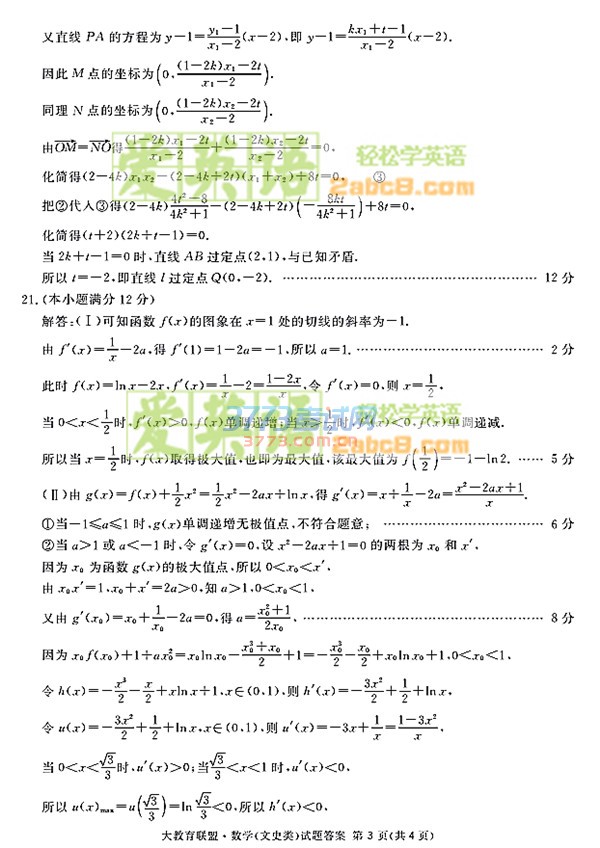 又直线 PA 的方程为 y-1=\frac{y₁-1}{x₁-2}(x-2),即 y-1=\frac{kx₁+t-1}{x₁-2}(x-2).
因此 M 点的坐标为(0,\frac{(1-2k)x₁-2t}{x₁-2}).
同理 N 点的坐标为(0,\frac{(1-2k)x₂-2t}{x₂-2}).
由\overrightarrow{OM}=\overrightarrow{NO}得\frac{(1-2k)x₁-2t}{x₁-2}+\frac{(1-2k)x₂-2t}{x₂-2}=0,
化简得(2-4k)x₁x₂-(2-4k+2t)(x₁+x₂)+8t=0, ③
把②代入③得(2-4k)\frac{4t²-8}{4k²+1}-(2-4k+2t)(-\frac{8kt}{4k²+1})+8t=0,
化简得(t+2)(2k+t-1)=0.
当 2k+t-1=0 时,直线 AB 过定点(2,1),与已知矛盾.
所以 t=-2,即直线 l 过定点 Q(0,-2). …… 12 分
21.(本小题满分 12 分)
解答:(Ⅰ)可知函数 f(x)的图象在 x=1 处的切线的斜率为-1.
由 f′(x)=\frac{1}{x}-2a,得 f′(1)=1-2a=-1,所以 a=1. …… 2 分
此时 f(x)=ln x-2x,f′(x)=\frac{1}{x}-2=\frac{1-2x}{x},令 f′(x)=0,则 x=\frac{1}{2},
当 0<x<\frac{1}{2}时,f′(x)>0,f(x)单调递增;当 x>\frac{1}{2}时,f′(x)<0,f(x)单调递减.
所以当 x=\frac{1}{2}时,f(x)取得极大值,也即为最大值,该最大值为 f(\frac{1}{2})=-1-ln2. …… 5 分
(Ⅱ)由 g(x)=f(x)+\frac{1}{2}x²=\frac{1}{2}x²-2ax+ln x,得 g′(x)=x+\frac{1}{x}-2a=\frac{x²-2ax+1}{x}.
①当-1≤a≤1 时,g(x)单调递增无极值点,不符合题意; …… 6 分
②当 a>1 或 a<-1 时,令 g′(x)=0,设 x²-2ax+1=0 的两根为 x₀ 和 x′,
因为 x₀ 为函数 g(x)的极大值点,所以 0<x₀<x′,
由 x₀x′=1,x₀+x′=2a>0,知 a>1,0<x₀<1,
又由 g′(x₀)=x₀+\frac{1}{x₀}-2a=0,得 a=\frac{x₀²+1}{2x₀}, …… 8 分
因为 x₀f(x₀)+1+ax₀²=x₀ln x₀-\frac{x₀³+x₀}{2}+1=-\frac{x₀³}{2}-\frac{x₀}{2}+x₀ln x₀+1,0<x₀<1,
令 h(x)=-\frac{x³}{2}-\frac{x}{2}+xln x+1,x∈(0,1),则 h′(x)=-\frac{3x²}{2}+\frac{1}{2}+ln x,
令 u(x)=-\frac{3x²}{2}+\frac{1}{2}+ln x,x∈(0,1),则 u′(x)=-3x+\frac{1}{x}=\frac{1-3x²}{x},
当 0<x<\frac{√3}{3}时,u′(x)>0;当\frac{√3}{3}<x<1 时,u′(x)<0,
所以 u(x)max=u(\frac{√3}{3})=ln\frac{√3}{3}<0,所以 h′(x)<0,
大教育联盟·数学(文史类)试题答案 第 3 页(共 4 页)
爱英语
轻松学英语
2abc8.com
爱英语
轻松学英语
2abc8.com
3773考试网
3773.com.cn